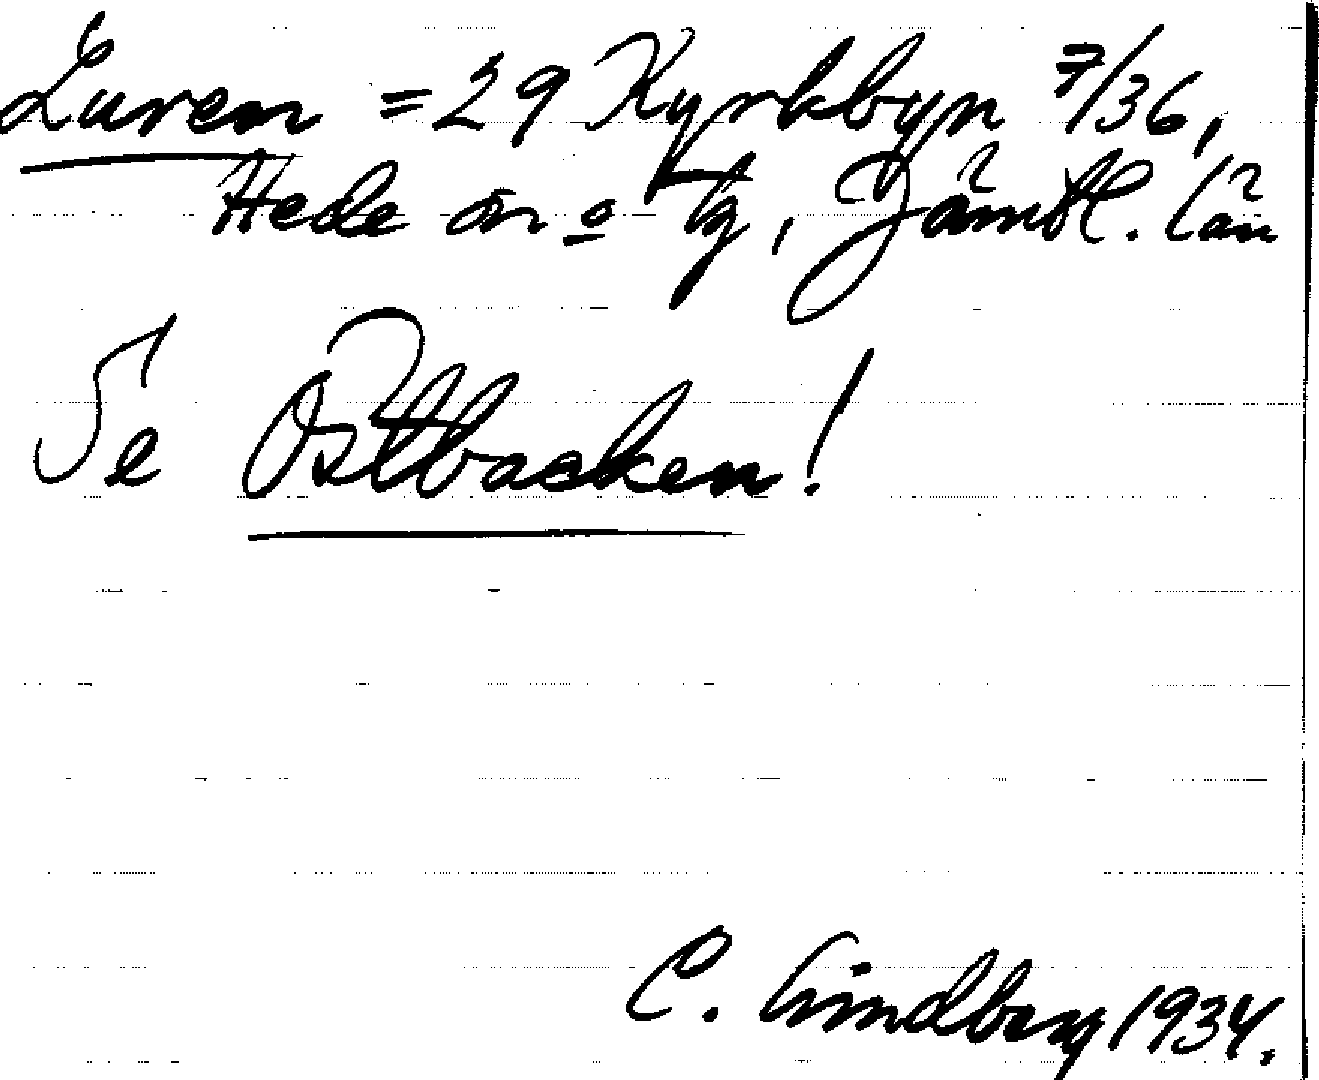 Luren = 29 Kyrkbyn 7/36,
Hede sn o tg, Jämtl. län
Se Östbacken!
C. Lindberg 1934.